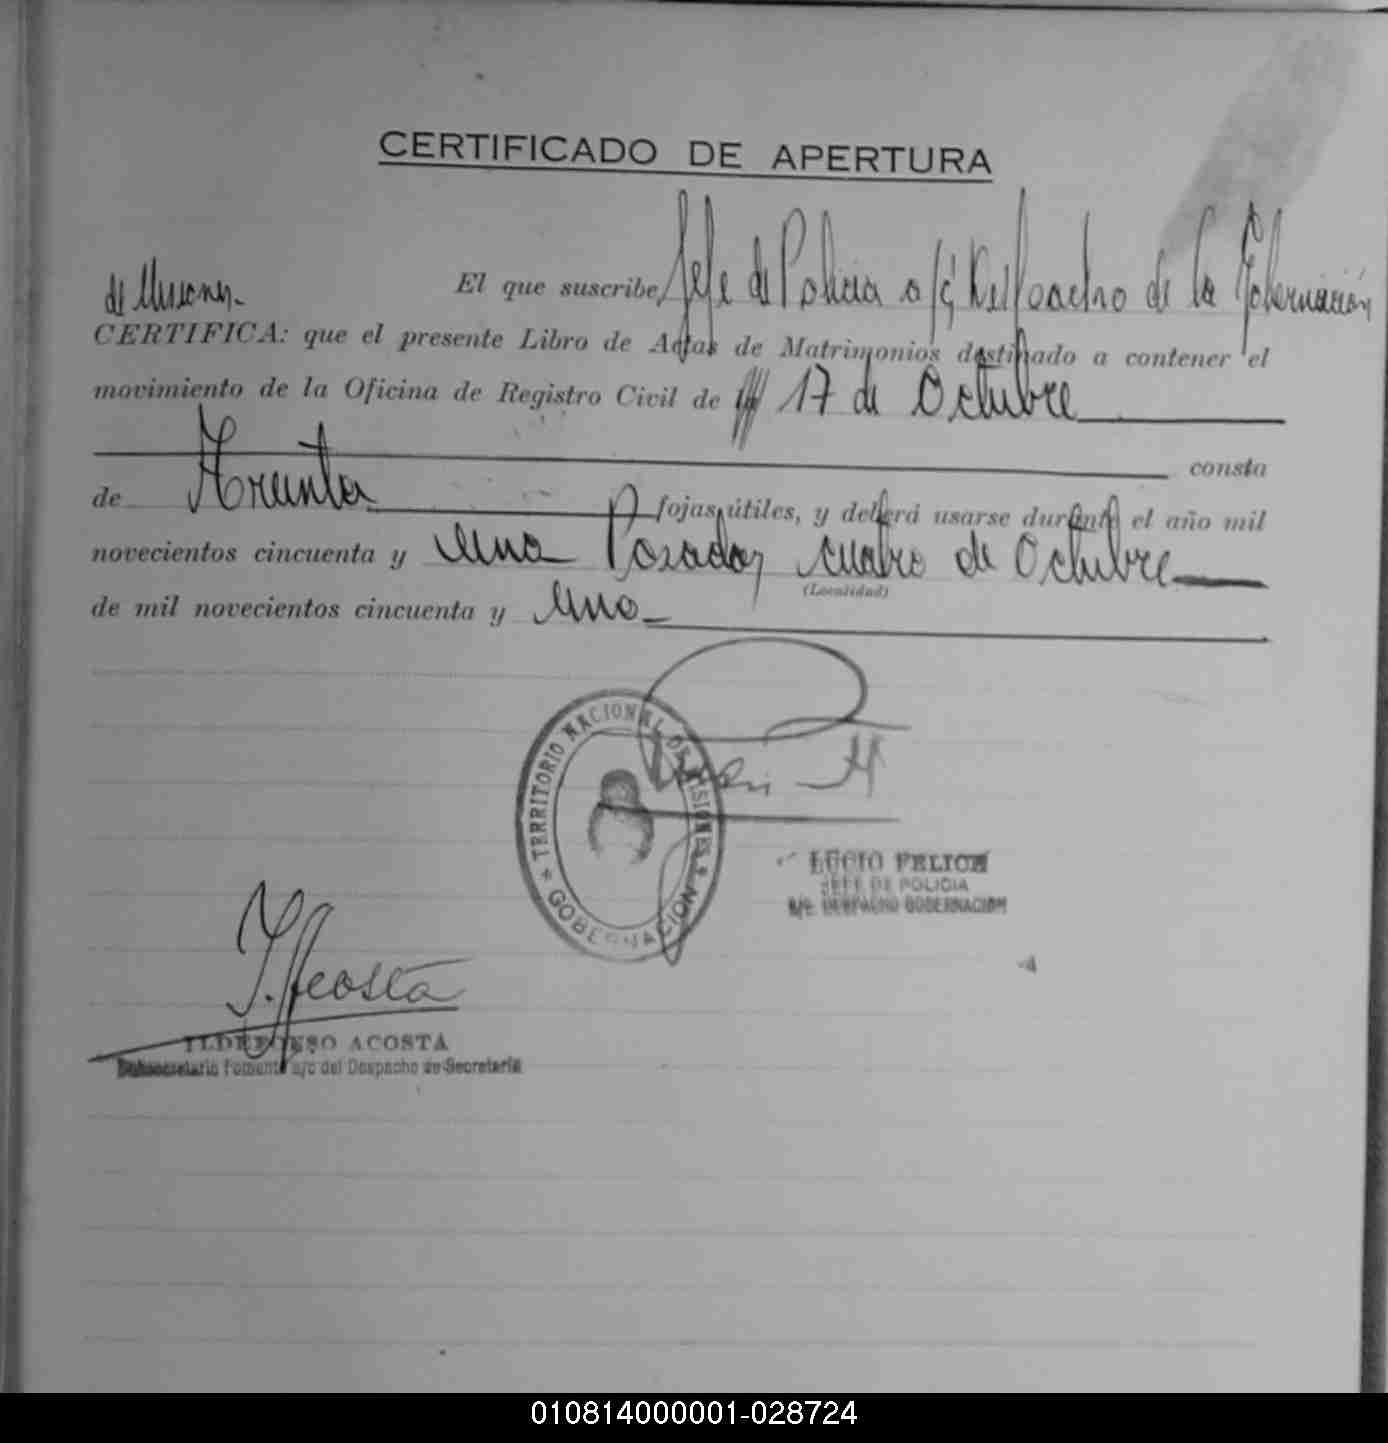 CERTIFICADO DE APERTURA
El que suscribe, Jefe de Policia a/c Despacho de la Gobernación
de Misiones.
CERTIFICA: que el presente Libro de Actas de Matrimonios destinado a contener el
movimiento de la Oficina de Registro Civil de 17 de Octubre
consta
de Treinta fojas útiles, y deberá usarse durante el año mil
novecientos cincuenta y uno Posadas, cuatro de Octubre
(Localidad)
de mil novecientos cincuenta y uno
TERRITORIO NACIONAL DE MISIONES
GOBERNACION
LUCIO FELICE
JEFE DE POLICIA
a/c. DESPACHO GOBERNACION
I. Acosta
ILDEFONSO ACOSTA
Subsecretario Fomento a/c del Despacho de Secretaria
010814000001-028724